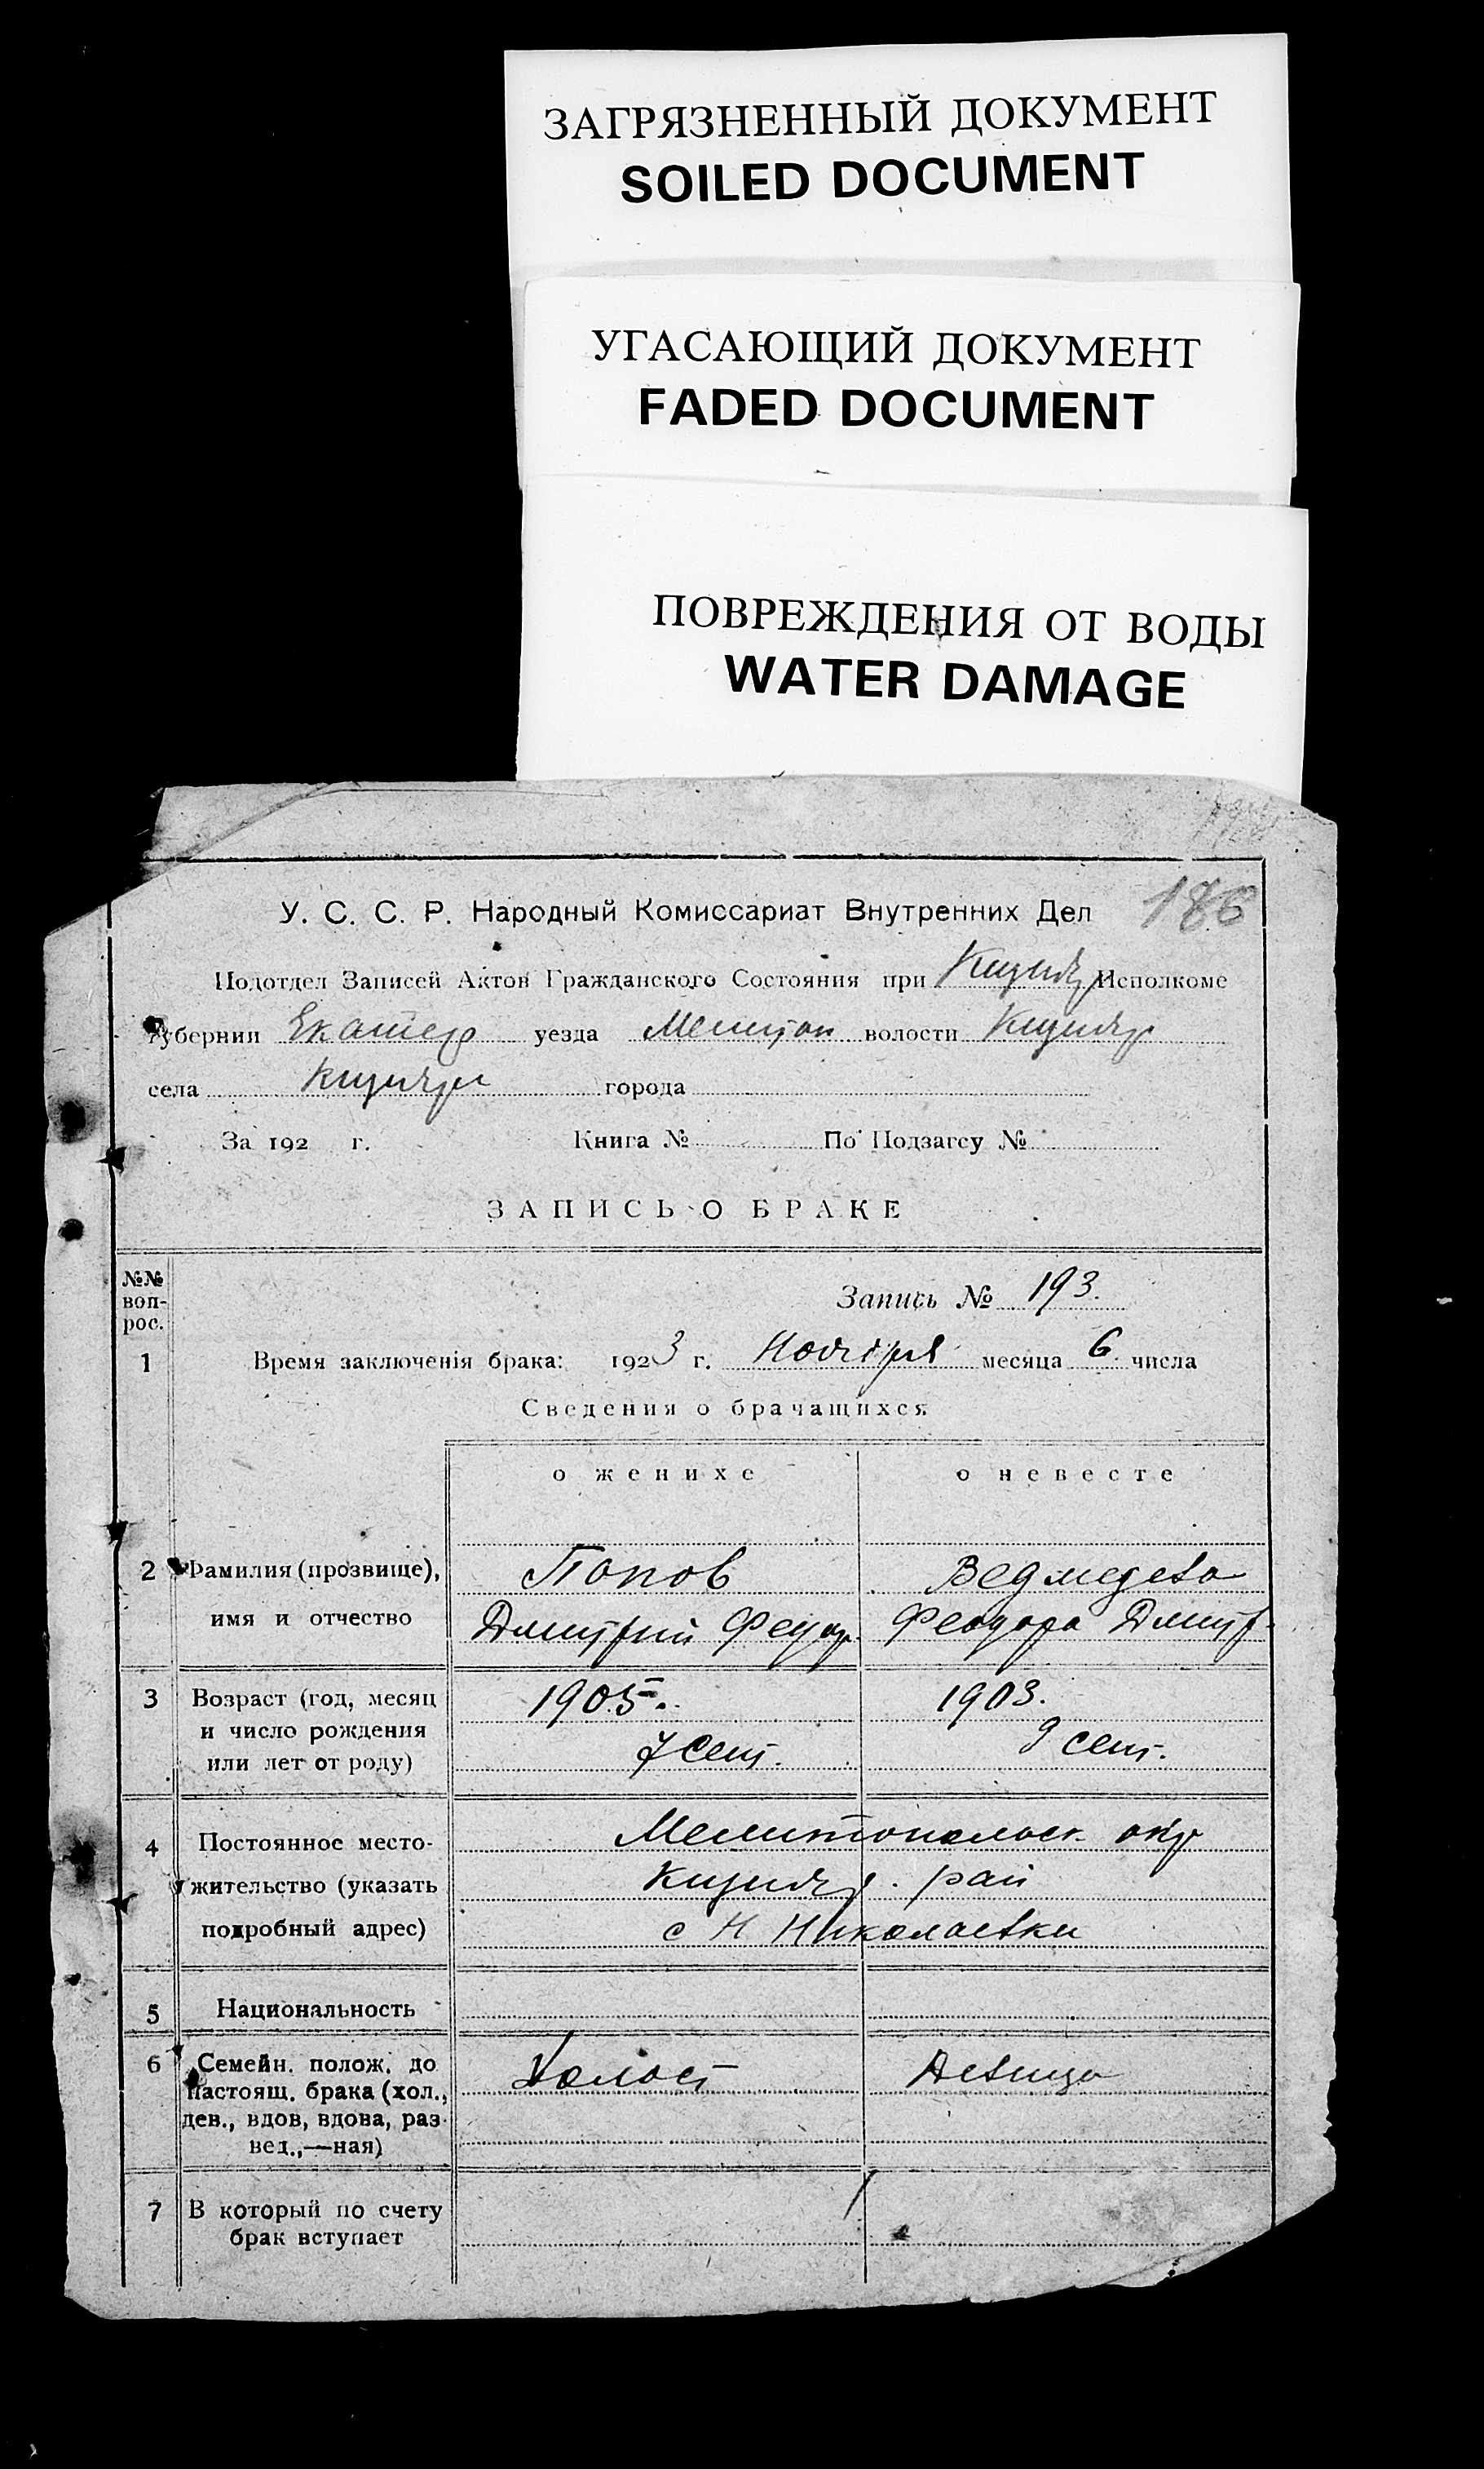 ЗАГРЯЗНЕННЫЙ ДОКУМЕНТ
SOILED DOCUMENT
УГАСАЮЩИЙ ДОКУМЕНТ
FADED DOCUMENT
ПОВРЕЖДЕНИЯ ОТ ВОДЫ
WATER DAMAGE
У. С. С. Р. Народный Комиссариат Внутренних Дел 186
Подотдел Записей Актов Гражданского Состояния при Кизияр Исполкоме
губернии Екатер уезда Мелитоп волости Кизияр
села Кизияри города
За 192 г. Книга № По Подзагсу №
ЗАПИСЬ О БРАКЕ
№№
воп-
рос.
Запись № 193.
1 Время заключенія брака: 1923 г. Ноября месяца 6 числа
Сведения о брачащихся
о женихе о невесте
2 Фамилия (прозвище), Попов Ведмедева
имя и отчество Дмитрий Федор. Феодора Дмитр.
3 Возраст (год, месяц 1905. 1903.
и число рождения
или лет от роду) 7 сент. 9 сент.
4 Постоянное место- Мелитопольск. окр
жительство (указать Кизияр. рай
подробный адрес) с Н Николаевки
5 Национальность
6 Семейн. полож. до Холост Девица
настоящ. брака (хол.,
дев., вдов, вдова, раз-
вед.,—ная)
7 В который по счету 1
брак вступает